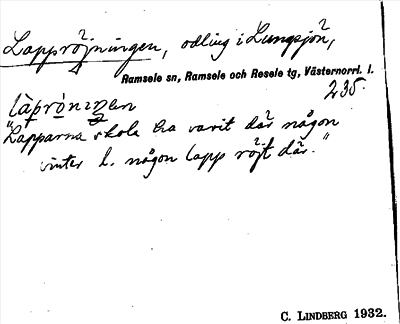 Lappröjningen, odling i Lungsjön,
Ramsele sn, Ramsele och Resele tg, Västernorrl. l.
235.
làprö̀niŋen
"Lapparna skola ha varit där någon
vinter l. någon lapp röjt där."
C. LINDBERG 1932.